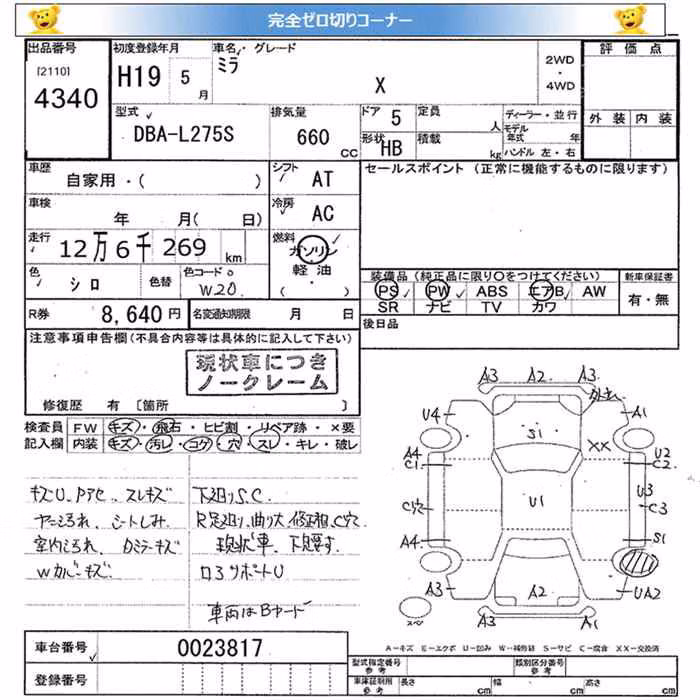 完全ゼロ切りコーナー
出品番号 初度登録年月 車名・グレード 評価点
[2110] ミラ 2WD
4340 H19 5月 X 4WD
型式 排気量 ドア 5 定員 人 ディーラー・並行 外装 内装
DBA-L275S 660 CC 形状 HB 積載 kg モデル年式 年
ハンドル 左・右
車歴 シフト セールスポイント(正常に機能するものに限ります)
自家用・( ) AT
車検 冷房
年 月( 日) AC
走行 燃料
12万6千269km ガソリン
軽油
色 シロ 色替 色コード W20
装備品(純正品に限り○をつけてください) 新車保証書
PS PW ABS エアB AW 有・無
SR ナビ TV カワ
R券 8,640円 名変通知期限 月 日
後日品
注意事項申告欄(不具合内容等は具体的に記入して下さい)
現状車につき
ノークレーム
修復歴 有 [箇所 ]
検査員 FW キズ・飛石・ヒビ割・リペア跡・×要
記入欄 内装 キズ・汚レ・コゲ・穴・スレ・キレ・破レ
キズU、Pアセ、スレキズ 下廻りS.C.
ヤニ汚れ、シートしみ R足廻り曲り大 修正相、C穴
室内汚れ、カミラーキズ 現状車、下見要す
Wカバーキズ ロSサポートU
車両はBヤード
A3 A2 A3
U4 A1
S1 XX
A4 U2
C1 C2
U3
C穴 U1 C3
A4 S1
A3 A2 UA2
スペ A1 A1
A-キズ E-エクボ U-凹み W-補修跡 S-サビ C-腐食 XX-交換済
車台番号 0023817
型式指定番号 参考 類別区分番号 参考
登録番号 車庫証明用 参考 長さ cm 幅 cm 高さ cm